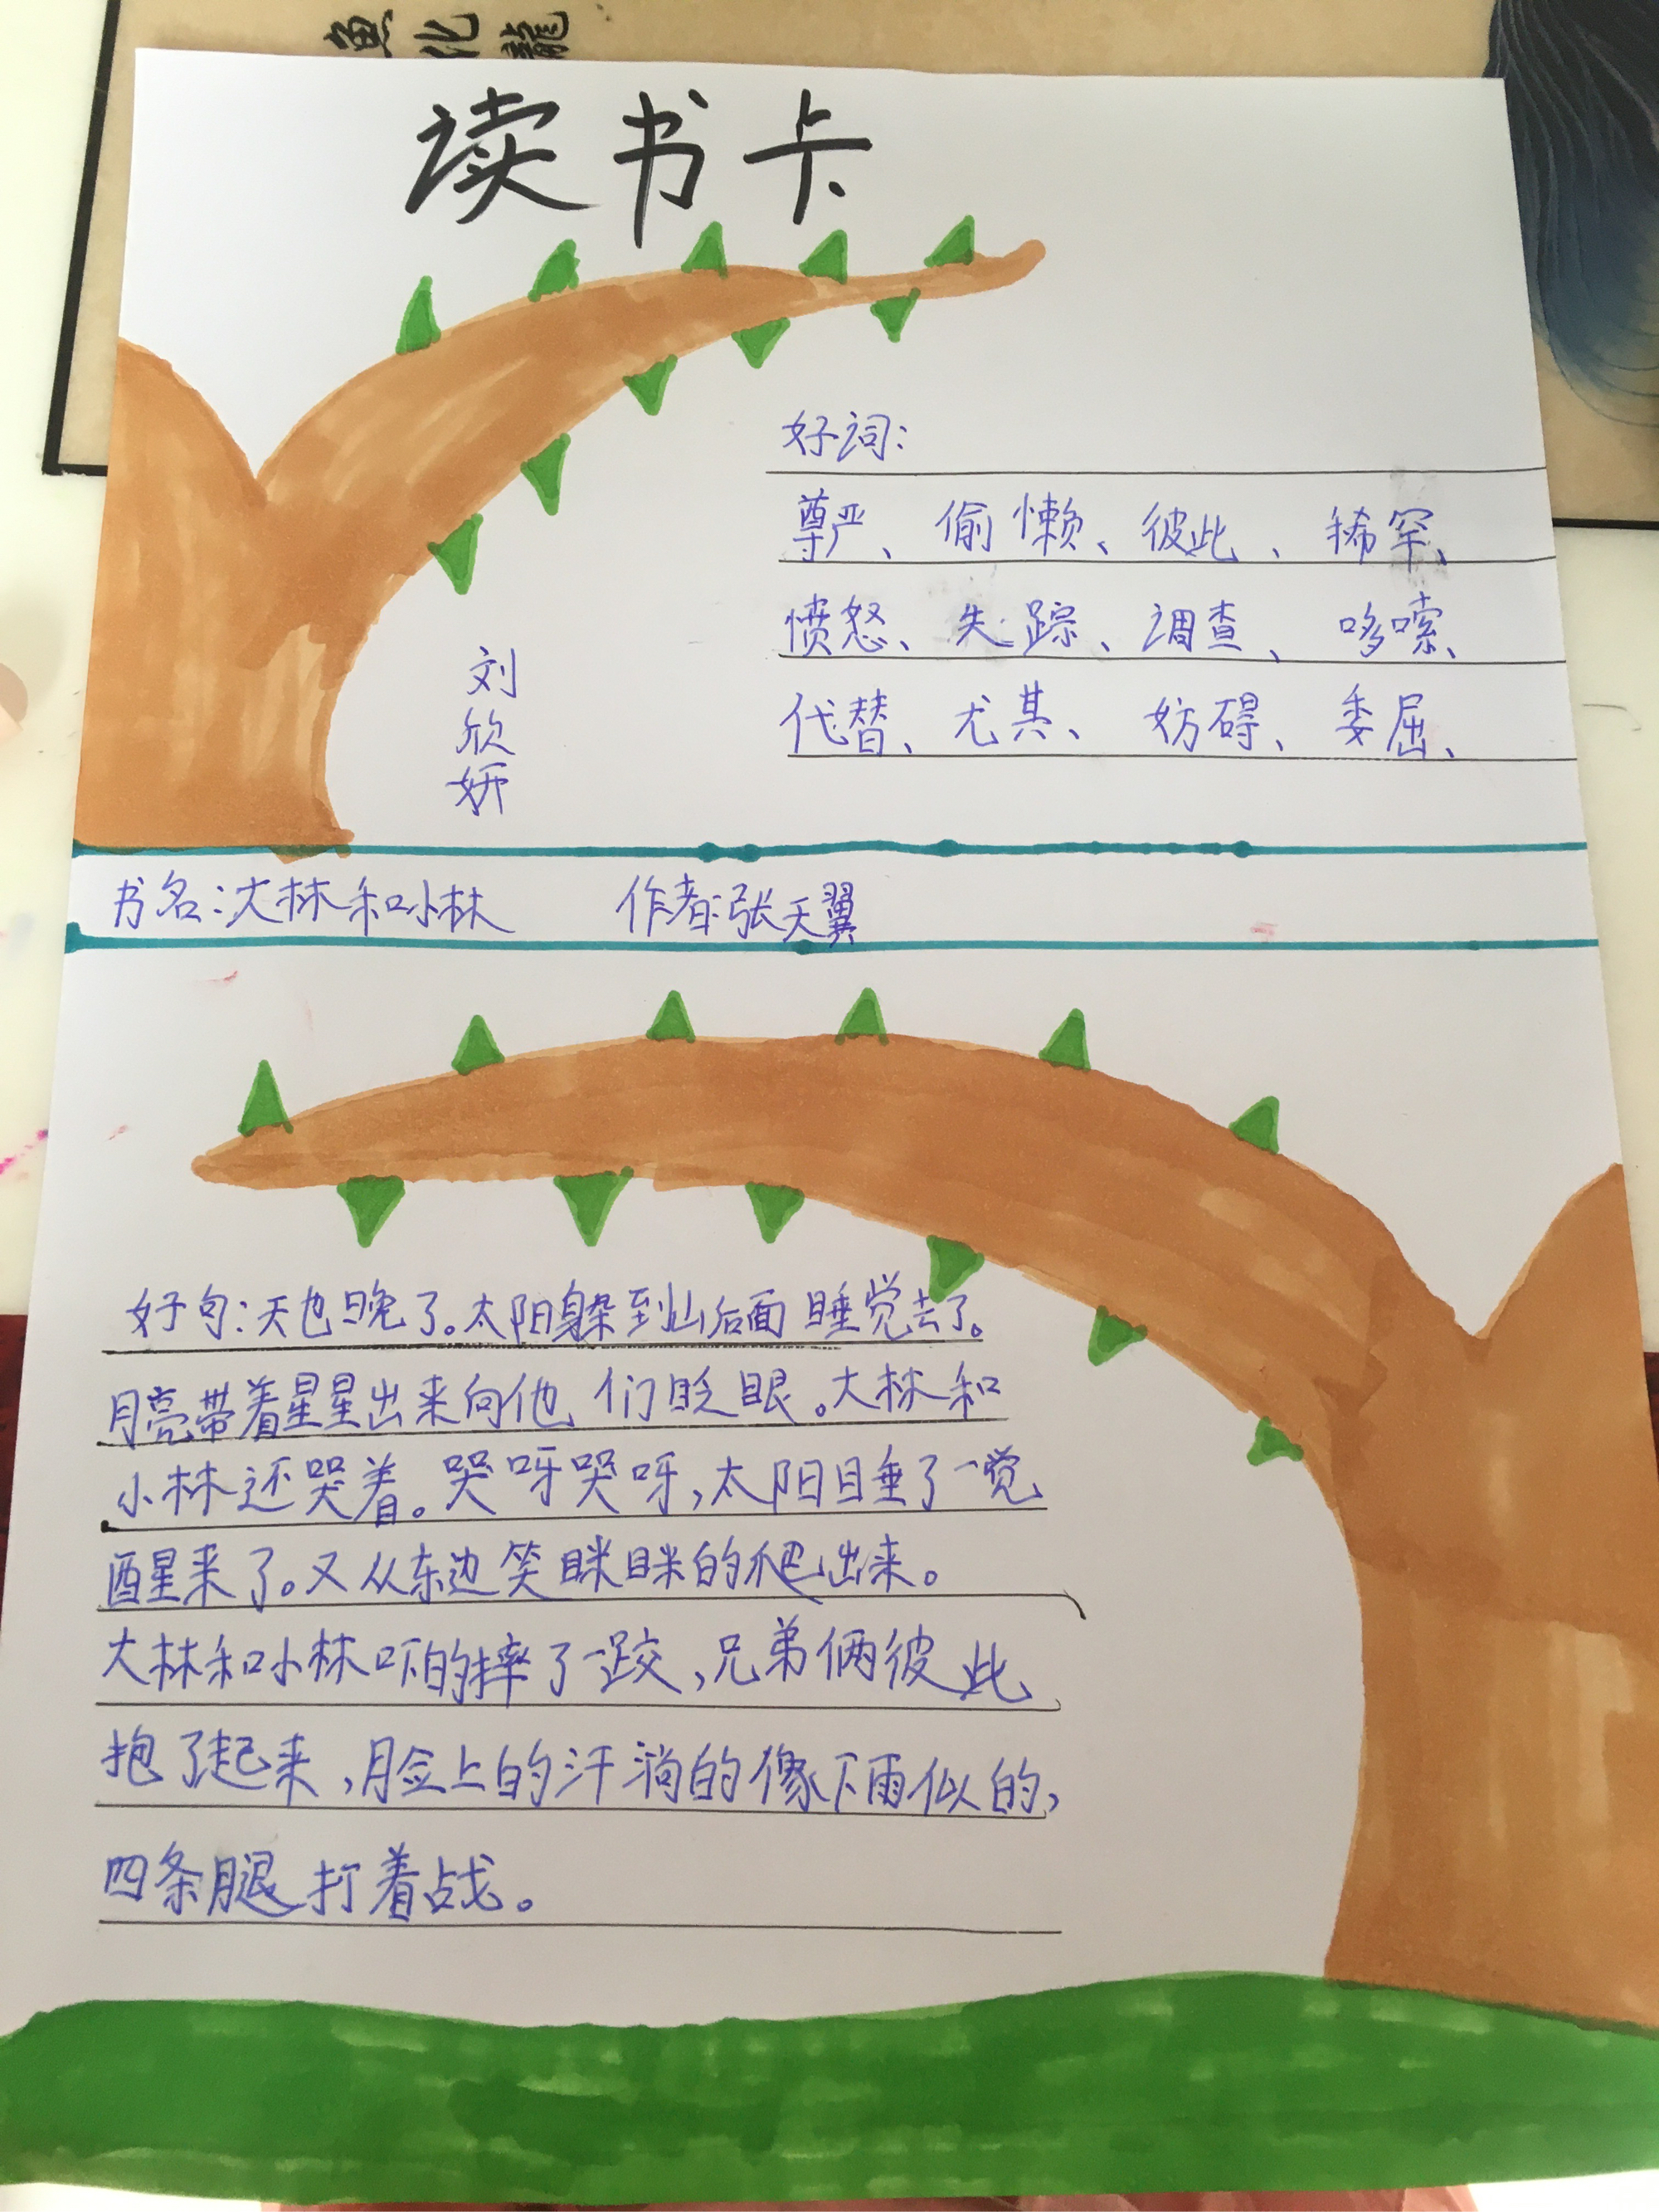 魚化龍
读书卡
好词：
尊严、偷懒、彼此、稀罕、
愤怒、失踪、调查、哆嗦、
代替、尤其、妨碍、委屈、
刘欣妍
书名：大林和小林 作者：张天翼
好句：天也晚了。太阳躲到山后面睡觉去了。
月亮带着星星出来向他们眨眼。大林和
小林还哭着。哭呀哭呀，太阳睡了一觉
醒来了。又从东边笑眯眯的爬出来。
大林和小林吓的摔了一跤，兄弟俩彼此
抱了起来，脸上的汗淌的像下雨似的，
四条腿打着战。